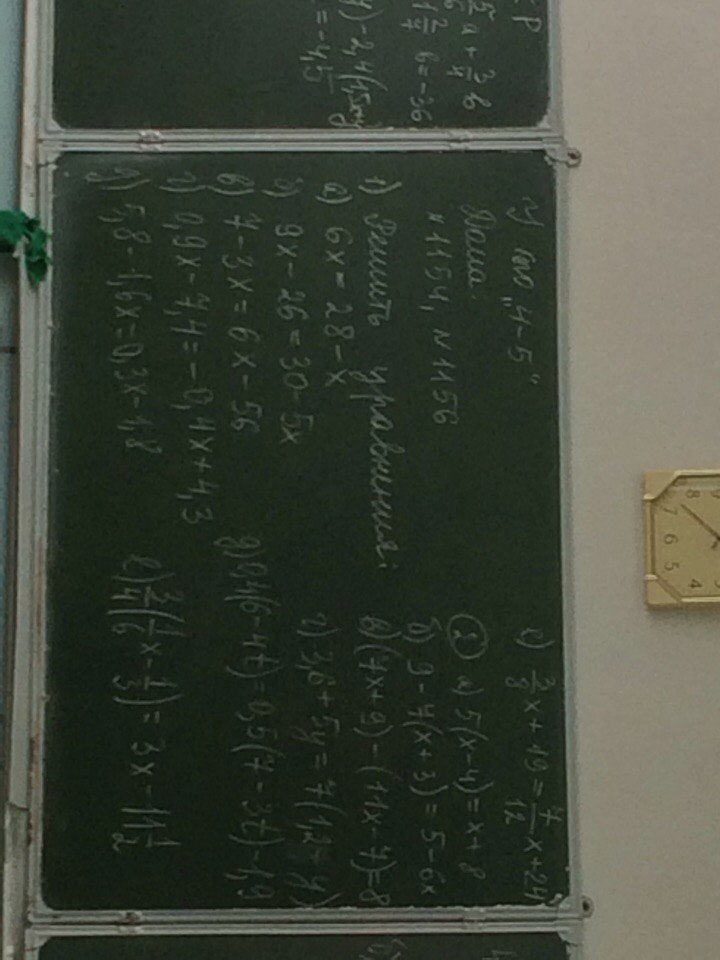 5/6 a + 3/4 b
b = -36
) - 2,4(1,5x
= -4,5
"4-5"
№1154, №1156
1) Решить уравнения:
а) 6x = 28 - x
б) 9x - 26 = 30 - 5x
в) 7 - 3x = 6x - 56
г) 0,9x - 7,4 = -0,4x + 4,3
д) 5,8 - 1,6x = 0,3x - 1,8
е) 3/8 x + 19 = 7/12 x + 24
2 а) 5(x - 4) = x + 8
б) 9 - 7(x + 3) = 5 - 6x
в) (7x + 9) - (11x - 7) = 8
г) 3,6 + 5y = 7(1,2 - y)
д) 0,4(6 - 4t) = 0,5(7 - 3t) - 1,9
е) 3/4 (1/6 x - 1/3) = 3x - 11 1/2
9
8
7
6
5
4